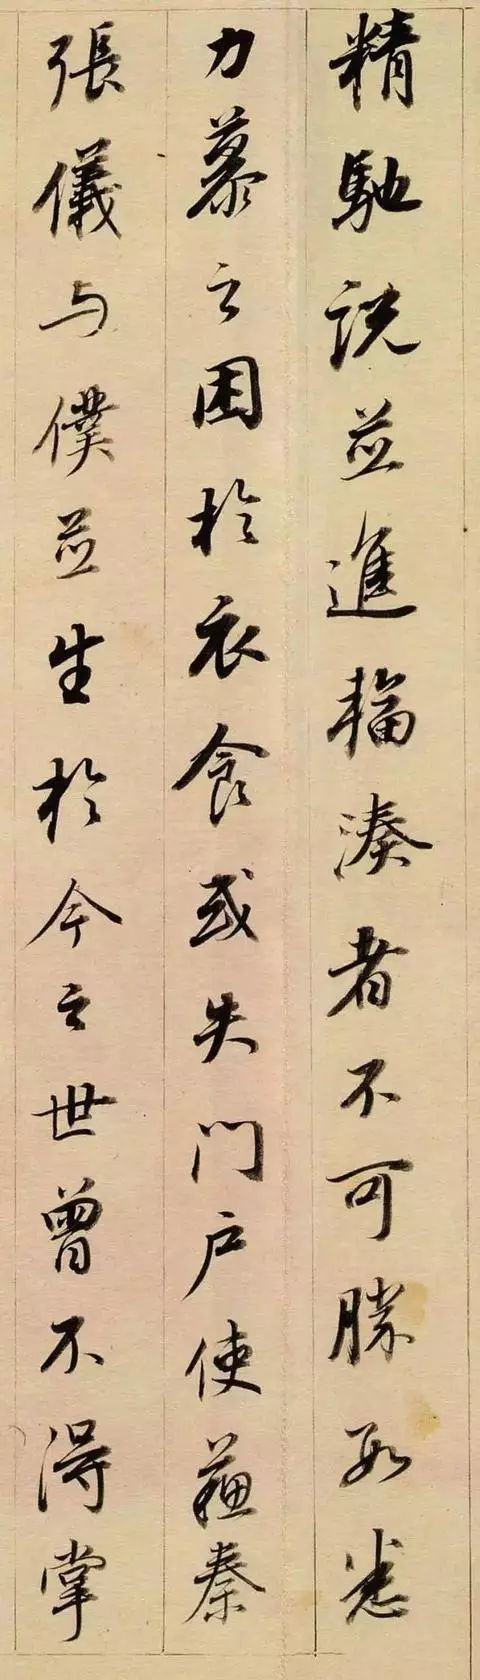 精馳說並進輻湊者不可勝數悉
力慕之困於衣食或失門戶使蘇秦
張儀與僕並生於今之世曾不得掌